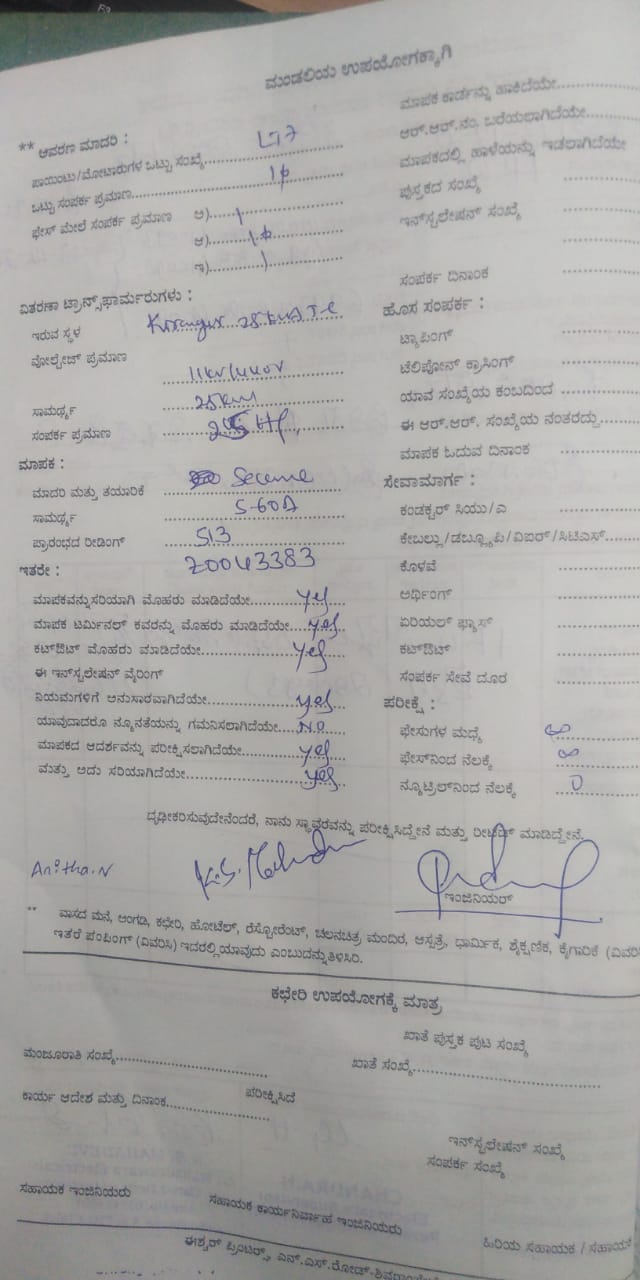 ಮಂಡಲಿಯ ಉಪಯೋಗಕ್ಕಾಗಿ
** ಆವರಣ ಮಾದರಿ :
LT7
ಪಾಯಿಂಟು/ಮೋಟಾರುಗಳ ಒಟ್ಟು ಸಂಖ್ಯೆ
ಒಟ್ಟು ಸಂಪರ್ಕ ಪ್ರಮಾಣ 1ϕ
ಫೇಸ್ ಮೇಲೆ ಸಂಪರ್ಕ ಪ್ರಮಾಣ ಅ) 1
ಆ) 1ϕ
ಇ) 1
ವಿತರಣಾ ಟ್ರಾನ್ಸ್‌ಫಾರ್ಮರುಗಳು :
ಇರುವ ಸ್ಥಳ
ವೋಲ್ಟೇಜ್ ಪ್ರಮಾಣ 11kv/440v
ಸಾಮರ್ಥ್ಯ
ಸಂಪರ್ಕ ಪ್ರಮಾಣ
ಮಾಪಕ :
ಮಾದರಿ ಮತ್ತು ತಯಾರಿಕೆ Secure
ಸಾಮರ್ಥ್ಯ 5-60A
ಪ್ರಾರಂಭದ ರೀಡಿಂಗ್ 513
ಇತರೇ : Z0043383
ಮಾಪಕವನ್ನು ಸರಿಯಾಗಿ ಮೊಹರು ಮಾಡಿದೆಯೇ yes
ಮಾಪಕ ಟರ್ಮಿನಲ್ ಕವರನ್ನು ಮೊಹರು ಮಾಡಿದೆಯೇ yes
ಕಟ್‌ಔಟ್ ಮೊಹರು ಮಾಡಿದೆಯೇ yes
ಈ ಇನ್‌ಸ್ಟಲೇಷನ್ ವೈರಿಂಗ್
ನಿಯಮಗಳಿಗೆ ಅನುಸಾರವಾಗಿದೆಯೇ yes
ಯಾವುದಾದರೂ ನ್ಯೂನತೆಯನ್ನು ಗಮನಿಸಲಾಗಿದೆಯೇ NO
ಮಾಪಕದ ಆದರ್ಶವನ್ನು ಪರೀಕ್ಷಿಸಲಾಗಿದೆಯೇ yes
ಮತ್ತು ಅದು ಸರಿಯಾಗಿದೆಯೇ yes
ಮಾಪಕ ಕಾರ್ಡನ್ನು ಹಾಕಿದೆಯೇ
ಆರ್.ಆರ್.ನಂ. ಬರೆಯಲಾಗಿದೆಯೇ
ಮಾಪಕದಲ್ಲಿ ಹಾಳೆಯನ್ನು ಇಡಲಾಗಿದೆಯೇ
ಪುಸ್ತಕದ ಸಂಖ್ಯೆ
ಇನ್‌ಸ್ಟಲೇಷನ್ ಸಂಖ್ಯೆ
ಸಂಪರ್ಕ ದಿನಾಂಕ
ಹೊಸ ಸಂಪರ್ಕ :
ಟ್ಯಾಪಿಂಗ್
ಟೆಲಿಫೋನ್ ಕ್ರಾಸಿಂಗ್
ಯಾವ ಸಂಖ್ಯೆಯ ಕಂಬದಿಂದ
ಈ ಆರ್.ಆರ್. ಸಂಖ್ಯೆಯ ನಂತರದ್ದು
ಮಾಪಕ ಓದುವ ದಿನಾಂಕ
ಸೇವಾಮಾರ್ಗ :
ಕಂಡಕ್ಟರ್ ಸಿಯು/ಎ
ಕೇಬಲ್ಲು/ಡಬ್ಲ್ಯೂಪಿ/ವಿಐರ್/ಸಿಟಿಎಸ್
ಕೊಳವೆ
ಅರ್ಥಿಂಗ್
ಏರಿಯಲ್ ಫ್ಯೂಸ್
ಕಟ್‌ಔಟ್
ಸಂಪರ್ಕ ಸೇವೆ ದೂರ
ಪರೀಕ್ಷೆ :
ಫೇಸುಗಳ ಮಧ್ಯೆ ∞
ಫೇಸ್‌ನಿಂದ ನೆಲಕ್ಕೆ ∞
ನ್ಯೂಟ್ರಲ್‌ನಿಂದ ನೆಲಕ್ಕೆ 0
ದೃಢೀಕರಿಸುವುದೇನೆಂದರೆ, ನಾನು ಸ್ಥಾವರವನ್ನು ಪರೀಕ್ಷಿಸಿದ್ದೇನೆ ಮತ್ತು ರೀಟೆಸ್ಟ್ ಮಾಡಿದ್ದೇನೆ.
Anitha.N
ಇಂಜಿನಿಯರ್
** ವಾಸದ ಮನೆ, ಅಂಗಡಿ, ಕಛೇರಿ, ಹೋಟೆಲ್, ರೆಸ್ಟೋರೆಂಟ್, ಚಲನಚಿತ್ರ ಮಂದಿರ, ಆಸ್ಪತ್ರೆ, ಧಾರ್ಮಿಕ, ಶೈಕ್ಷಣಿಕ, ಕೈಗಾರಿಕೆ (ವಿವರಿಸಿ
ಇತರೆ ಪಂಪಿಂಗ್ (ವಿವರಿಸಿ) ಇದರಲ್ಲಿ ಯಾವುದು ಎಂಬುದನ್ನು ತಿಳಿಸಿರಿ.
ಕಛೇರಿ ಉಪಯೋಗಕ್ಕೆ ಮಾತ್ರ
ಖಾತೆ ಪುಸ್ತಕ ಪುಟ ಸಂಖ್ಯೆ
ಮಂಜೂರಾತಿ ಸಂಖ್ಯೆ ಖಾತೆ ಸಂಖ್ಯೆ
ಪರೀಕ್ಷಿಸಿದೆ
ಕಾರ್ಯ ಆದೇಶ ಮತ್ತು ದಿನಾಂಕ
ಇನ್‌ಸ್ಟಲೇಷನ್ ಸಂಖ್ಯೆ
ಸಂಪರ್ಕ ಸಂಖ್ಯೆ
ಸಹಾಯಕ ಇಂಜಿನಿಯರು ಸಹಾಯಕ ಕಾರ್ಯನಿರ್ವಾಹ ಇಂಜಿನಿಯರು ಹಿರಿಯ ಸಹಾಯಕ / ಸಹಾಯಕ
ಈಶ್ವರ್ ಪ್ರಿಂಟರ್ಸ್, ಎನ್.ಎಸ್.ರೋಡ್